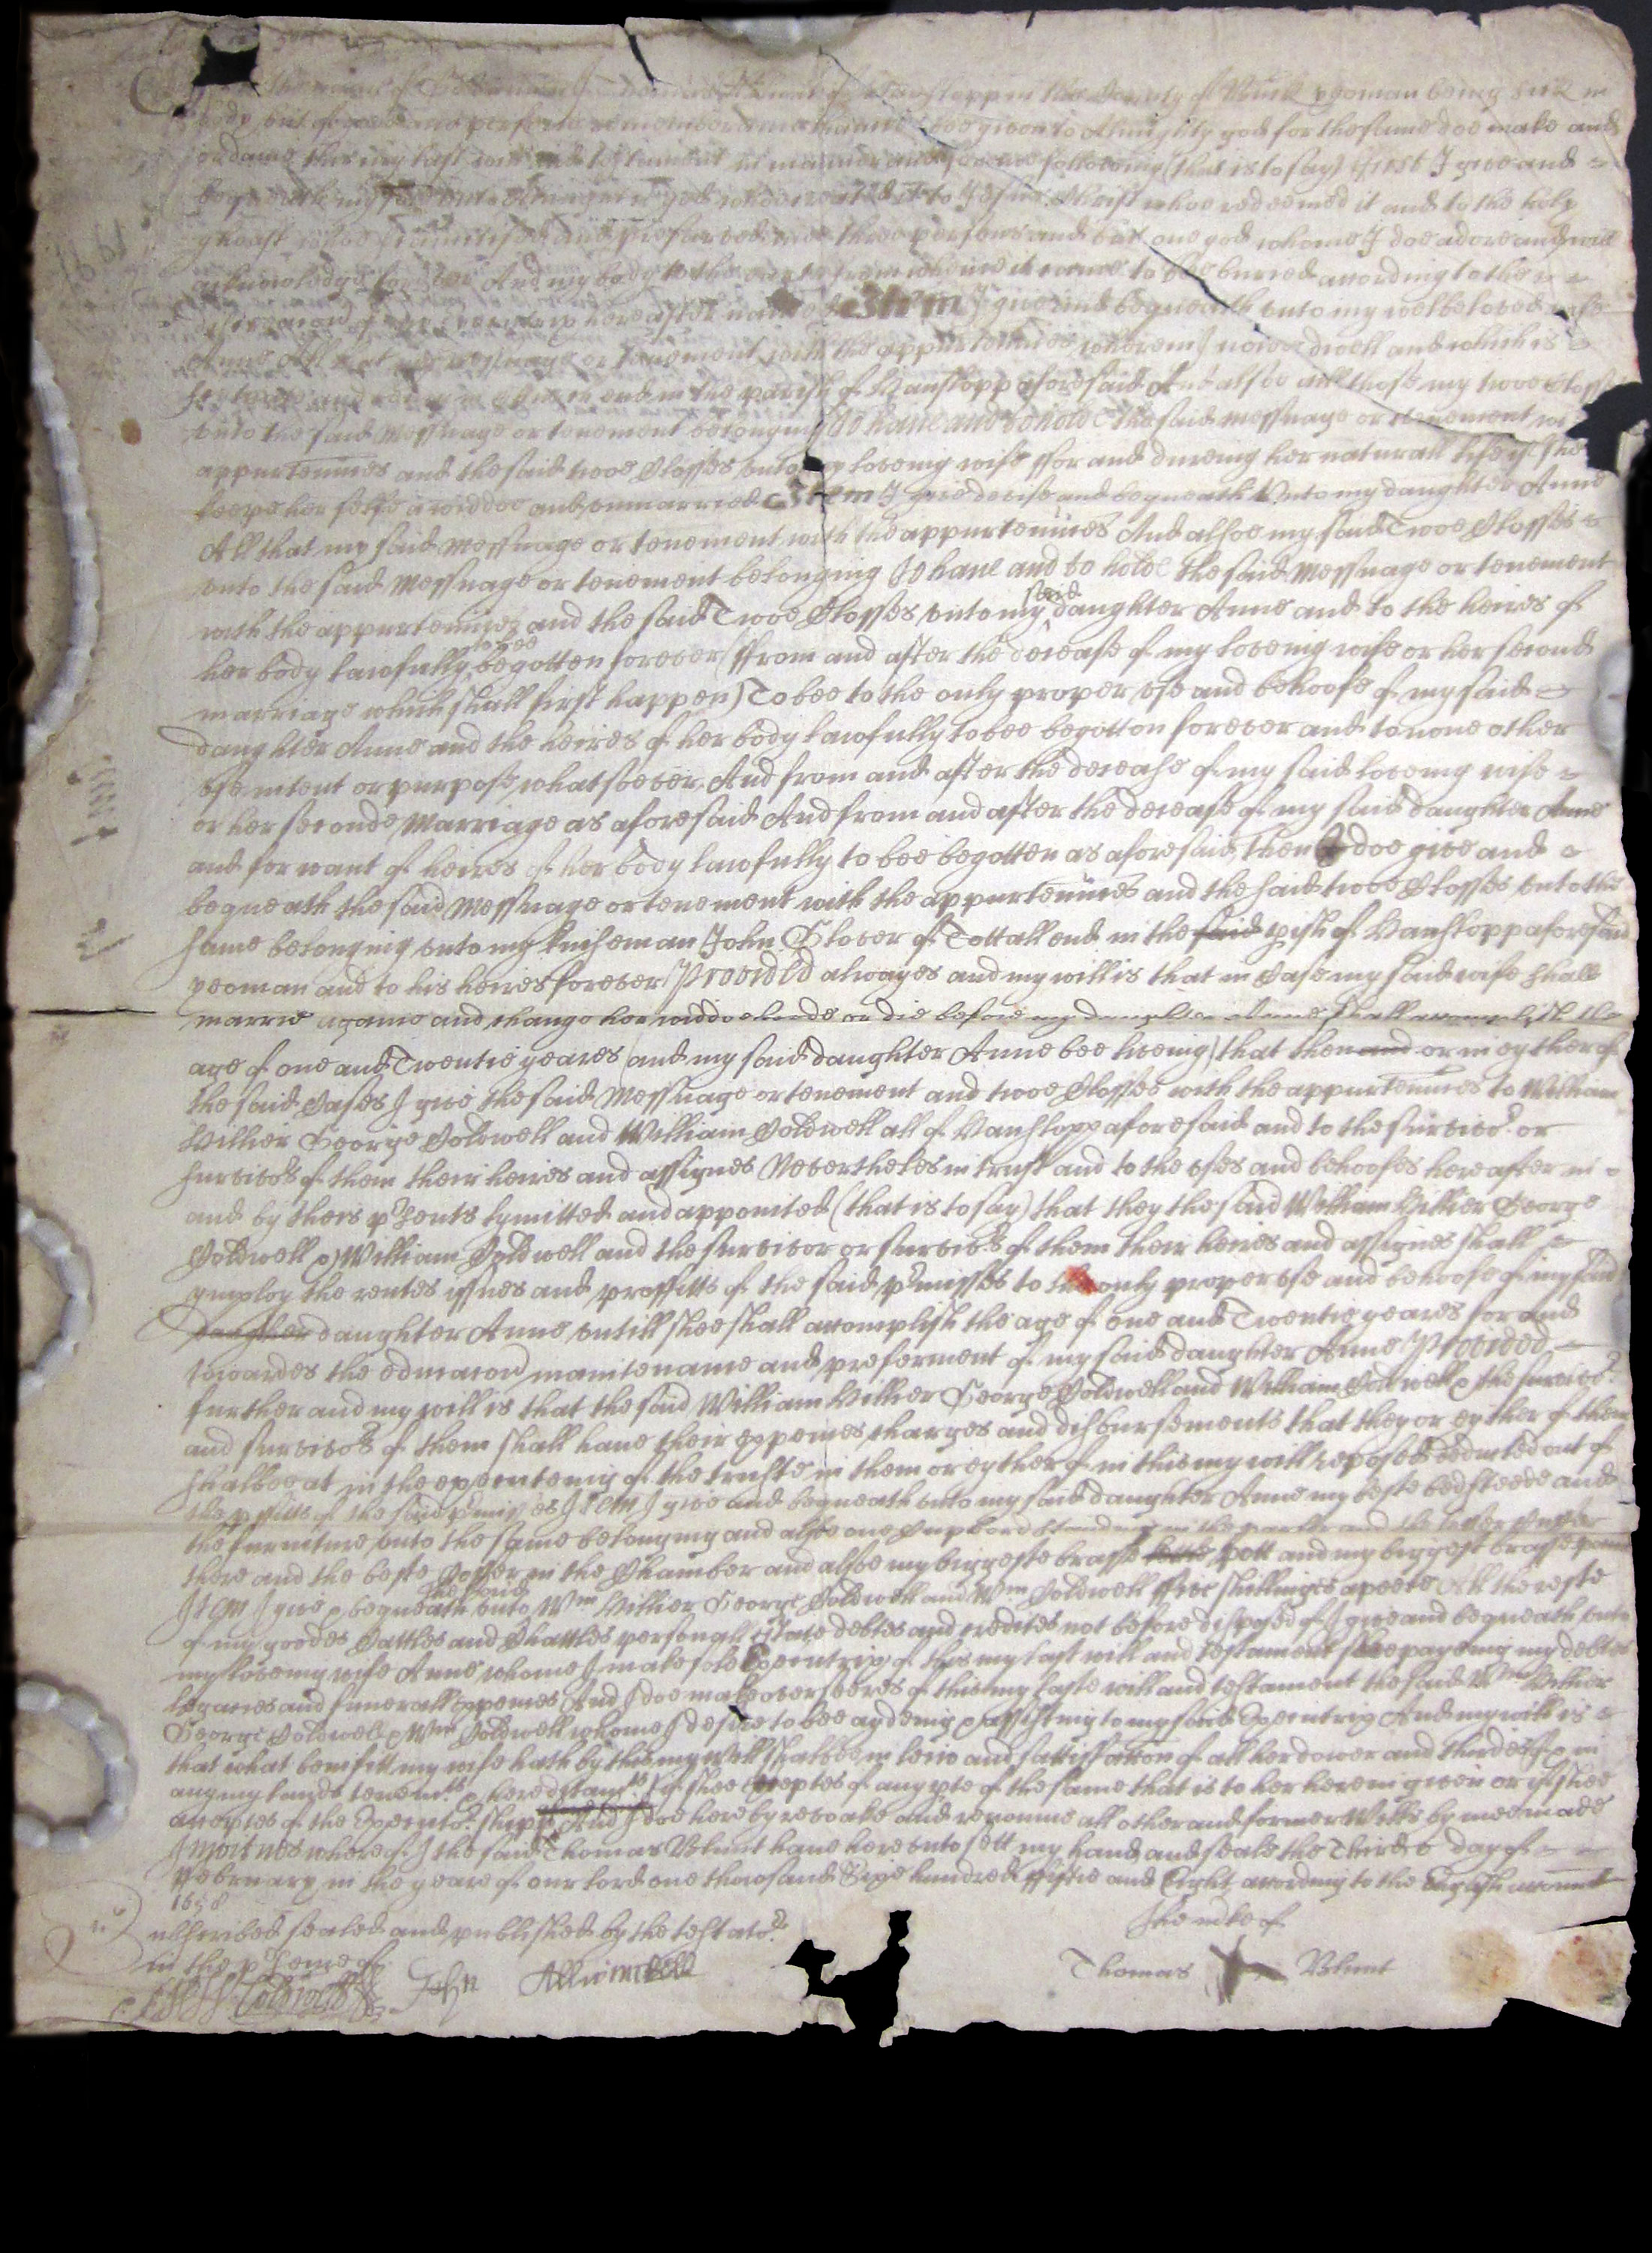 the name of God Amen I Thomas Blunt of Hanslopp in the County of Buck yeoman being sick in
body but of good and perfect remembrance thankes bee given to Almighty god for the same doe make and
ordaine this my last will and testament in manner and forme following (that is to say) first I give and
bequeath my soule unto Almighty god whoe created it to Jesus Christ whoe redeemed it and to the holy
ghoast whoe sanctified and preserved mee three persons and but one god whome I doe adore and will
acknowledge for ever And my body to the earth from whence it came to bee buried according to the
discrecion of my Executrix hereafter named Item I give and bequeath unto my welbeloved wife
Anne All that my messuage or tenement with the appurtennces wherein I nowe dwell and which is
scituate and being in end in the parish of Hanslopp aforesaid And alsoe all those my twoe Closses
unto the said Messuage or tenement belonging To have and to hold the said messuage or tenement wi
appurtennces and the said twoe Closses unto my loveing wife ffor and dureing her naturall life if she
keepe her selfe a widdoe and unmarried Item I give devise and bequeath Unto my daughter Anne
All that my said Messuage or tenement with the appurtennces And alsoe my said Twoe Closses
unto the said Messuage or tenement belonging To have and to hold the said Messuage or tenement
with the appurtennces and the said Twoe Closses unto my said daughter Anne and to the heires of
her body lawfully to bee begotten forever (ffrom and after the decease of my loveing wife or her second
marriage which shall first happen) To bee to the only proper use and behoofe of my said
daughter Anne and the heires of her body lawfully to bee begotten forever and to none other
use intent or purpose whatsoever. And from and after the decease of my said loveing wife
or her seconde Marriage as aforesaid And from and after the decease of my said daughter Anne
and for want of heires of her body lawfully to bee begotten as aforesaid, then I doe give and
bequeath the said Messuage or tenement with the appurtennces and the said twoe Closses unto the
same belonging unto my kinseman John Glover of Tottall end in the said pish of Hanslopp aforesaid
yeoman and to his heires forever Provided alwayes and my will is that in Case my said wife shall
marrie againe and change her widdoehoode or die before my daughter Anne shall accomplish the
age of one and Twentie yeares (and my said daughter Anne bee liveing) that then and or in eyther of
the said Cases I give the said Messuage or tenement and twoe Closses with the appurtennces to William
Hillier George Coldwell and William Coldwell all of Hanslopp aforesaid and to the survivor or
survivors of them their heires and assignes Neverthelesse in trust and to the uses and behoofes hereafter in
and by theis psents lymitted and appointed (that is to say) that they the said William Hillier George
Coldwell & William Coldwell and the survivor or survivors of them their heires and assignes shall
ymploy the rentes issues and proffitts of the said pmisses to the only proper use and behoofe of my said
daughter daughter Anne untill shee shall accomplish the age of one and Twentie yeares for and
towardes the educacion maintenance and preferment of my said daughter Anne Provided
further and my will is that the said William Hillier George Coldwell and William Coldwell & the survivor
and survivors of them shall have their expences charges and disbursements that they or eyther of them
shalbee at in the executeing of the truste in them or eyther of in this my will reposed deducted out of
the pfitts of the said pmisses Item I give and bequeath unto my said daughter Anne my beste bedsteede and
the furniture unto the same belonging and alsoe one Cupbord standing in the parler and the lesser Coffer
there and the beste Coffer in the Chamber and alsoe my biggeste brasse pott and my biggest brasse
Item I give & bequeath unto the said Wm Hillier George Coldwell and Wm Coldwell ffive shillinges apeece All the reste
of my goodes Cattles and Chattles personall estate debtes and credites not before disposed of I give and bequeath unto
my loveing wife Anne whome I make sole Executrix of this my last will and testament shee payeing my debtes
legacies and funerall expences And I doe make overseeres of this my laste will and testament the said Wm Hillier
George Coldwell & Wm Coldwell whome I desire to bee aydeing & assisting to my said Executrix And my will is
that what benifitt my wife hath by this my Will shalbee in leiw and sattisfaction of all her dower and thirdes in
any my landes tenemts & hereditamts if shee acceptes of any pte of the same that is to her herein given or if shee
acceptes of the Executor shipp And I doe hereby revoake and renounce all other and former Wills by mee made
In witnes whereof I the said Thomas Blunt have hereunto sett my hand and seale the Thirde day of
ffebruary in the yeare of our lord one thousand Sixe hundred ffiftie and Eight according to the English account
1658
ubscribed sealed and published by the testator
in the psence of
The mke of
Thomas Blunt
John